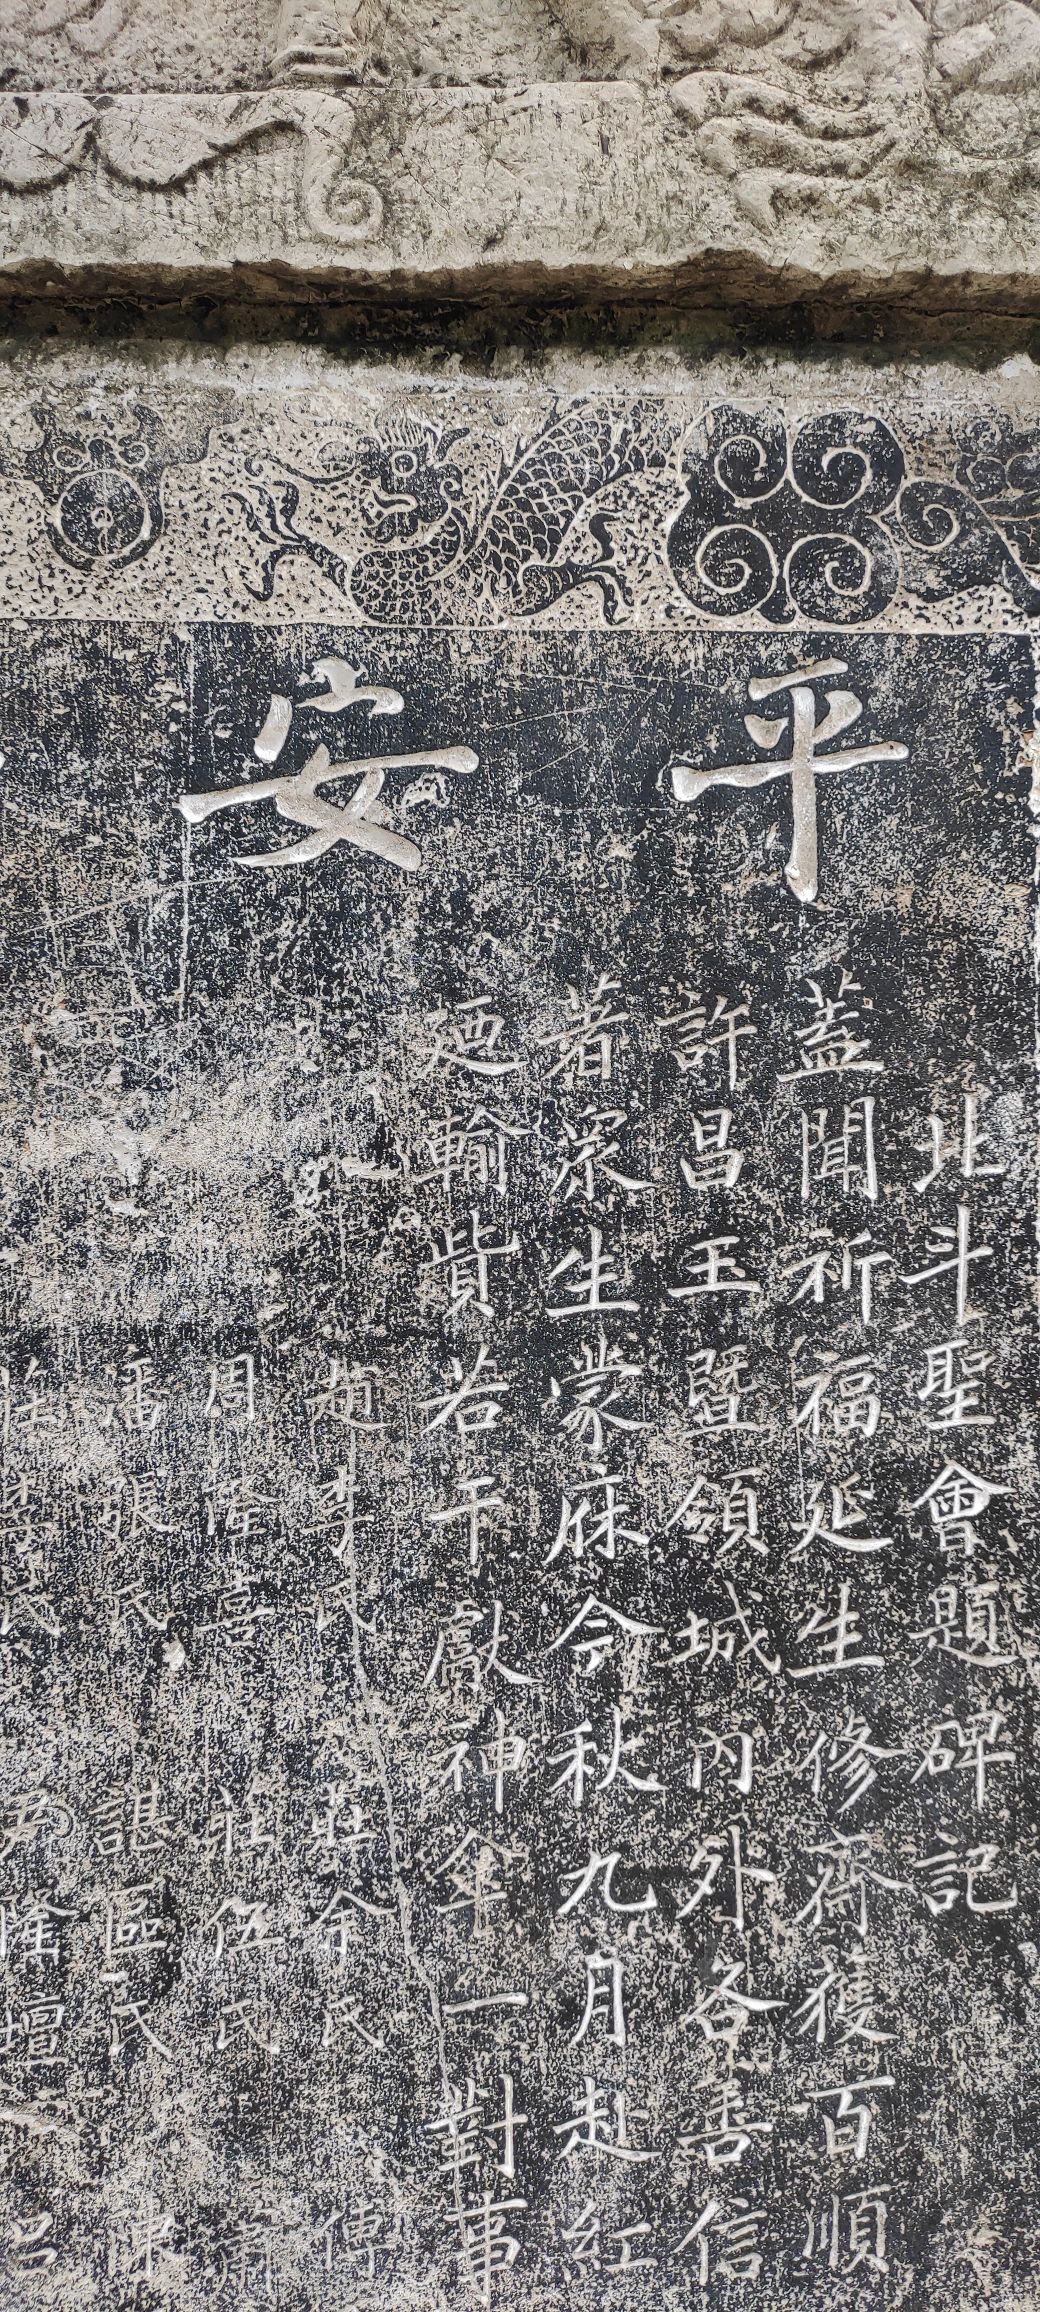 平安
北斗聖會題碑記
蓋聞祈福延生修齋獲百順
許昌王暨領城內外各善信
著眾生蒙庥今秋九月赴紅
廼輸貲若干獻神傘一對事
趙李氏 余氏 傅
周隆喜 莊伍氏 蕭
潘張氏 諶區氏
氏 隆壇 呂